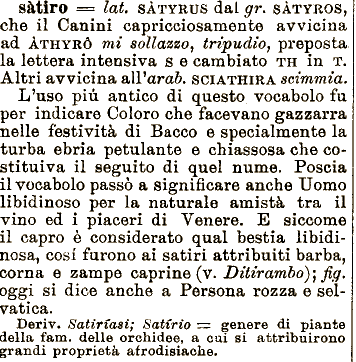 sàtiro = lat. SÀTYRUS dal gr. SÀTYROS,
che il Canini capricciosamente avvicina
ad ÀTHYRÔ mi sollazzo, tripudio, preposta
la lettera intensiva S e cambiato TH in T.
Altri avvicina all'arab. SCIATHIRA scimmia.
L'uso più antico di questo vocabolo fu
per indicare Coloro che facevano gazzarra
nelle festività di Bacco e specialmente la
turba ebria petulante e chiassosa che co-
stituiva il seguito di quel nume. Poscia
il vocabolo passò a significare anche Uomo
libidinoso per la naturale amistà tra il
vino ed i piaceri di Venere. E siccome
il capro è considerato qual bestia libidi-
nosa, cosí furono ai satiri attribuiti barba,
corna e zampe caprine (v. Ditirambo); fig.
oggi si dice anche a Persona rozza e sel-
vatica.
Deriv. Satiríasi; Satírio = genere di piante
della fam. delle orchidee, a cui si attribuirono
grandi proprietà afrodisiache.